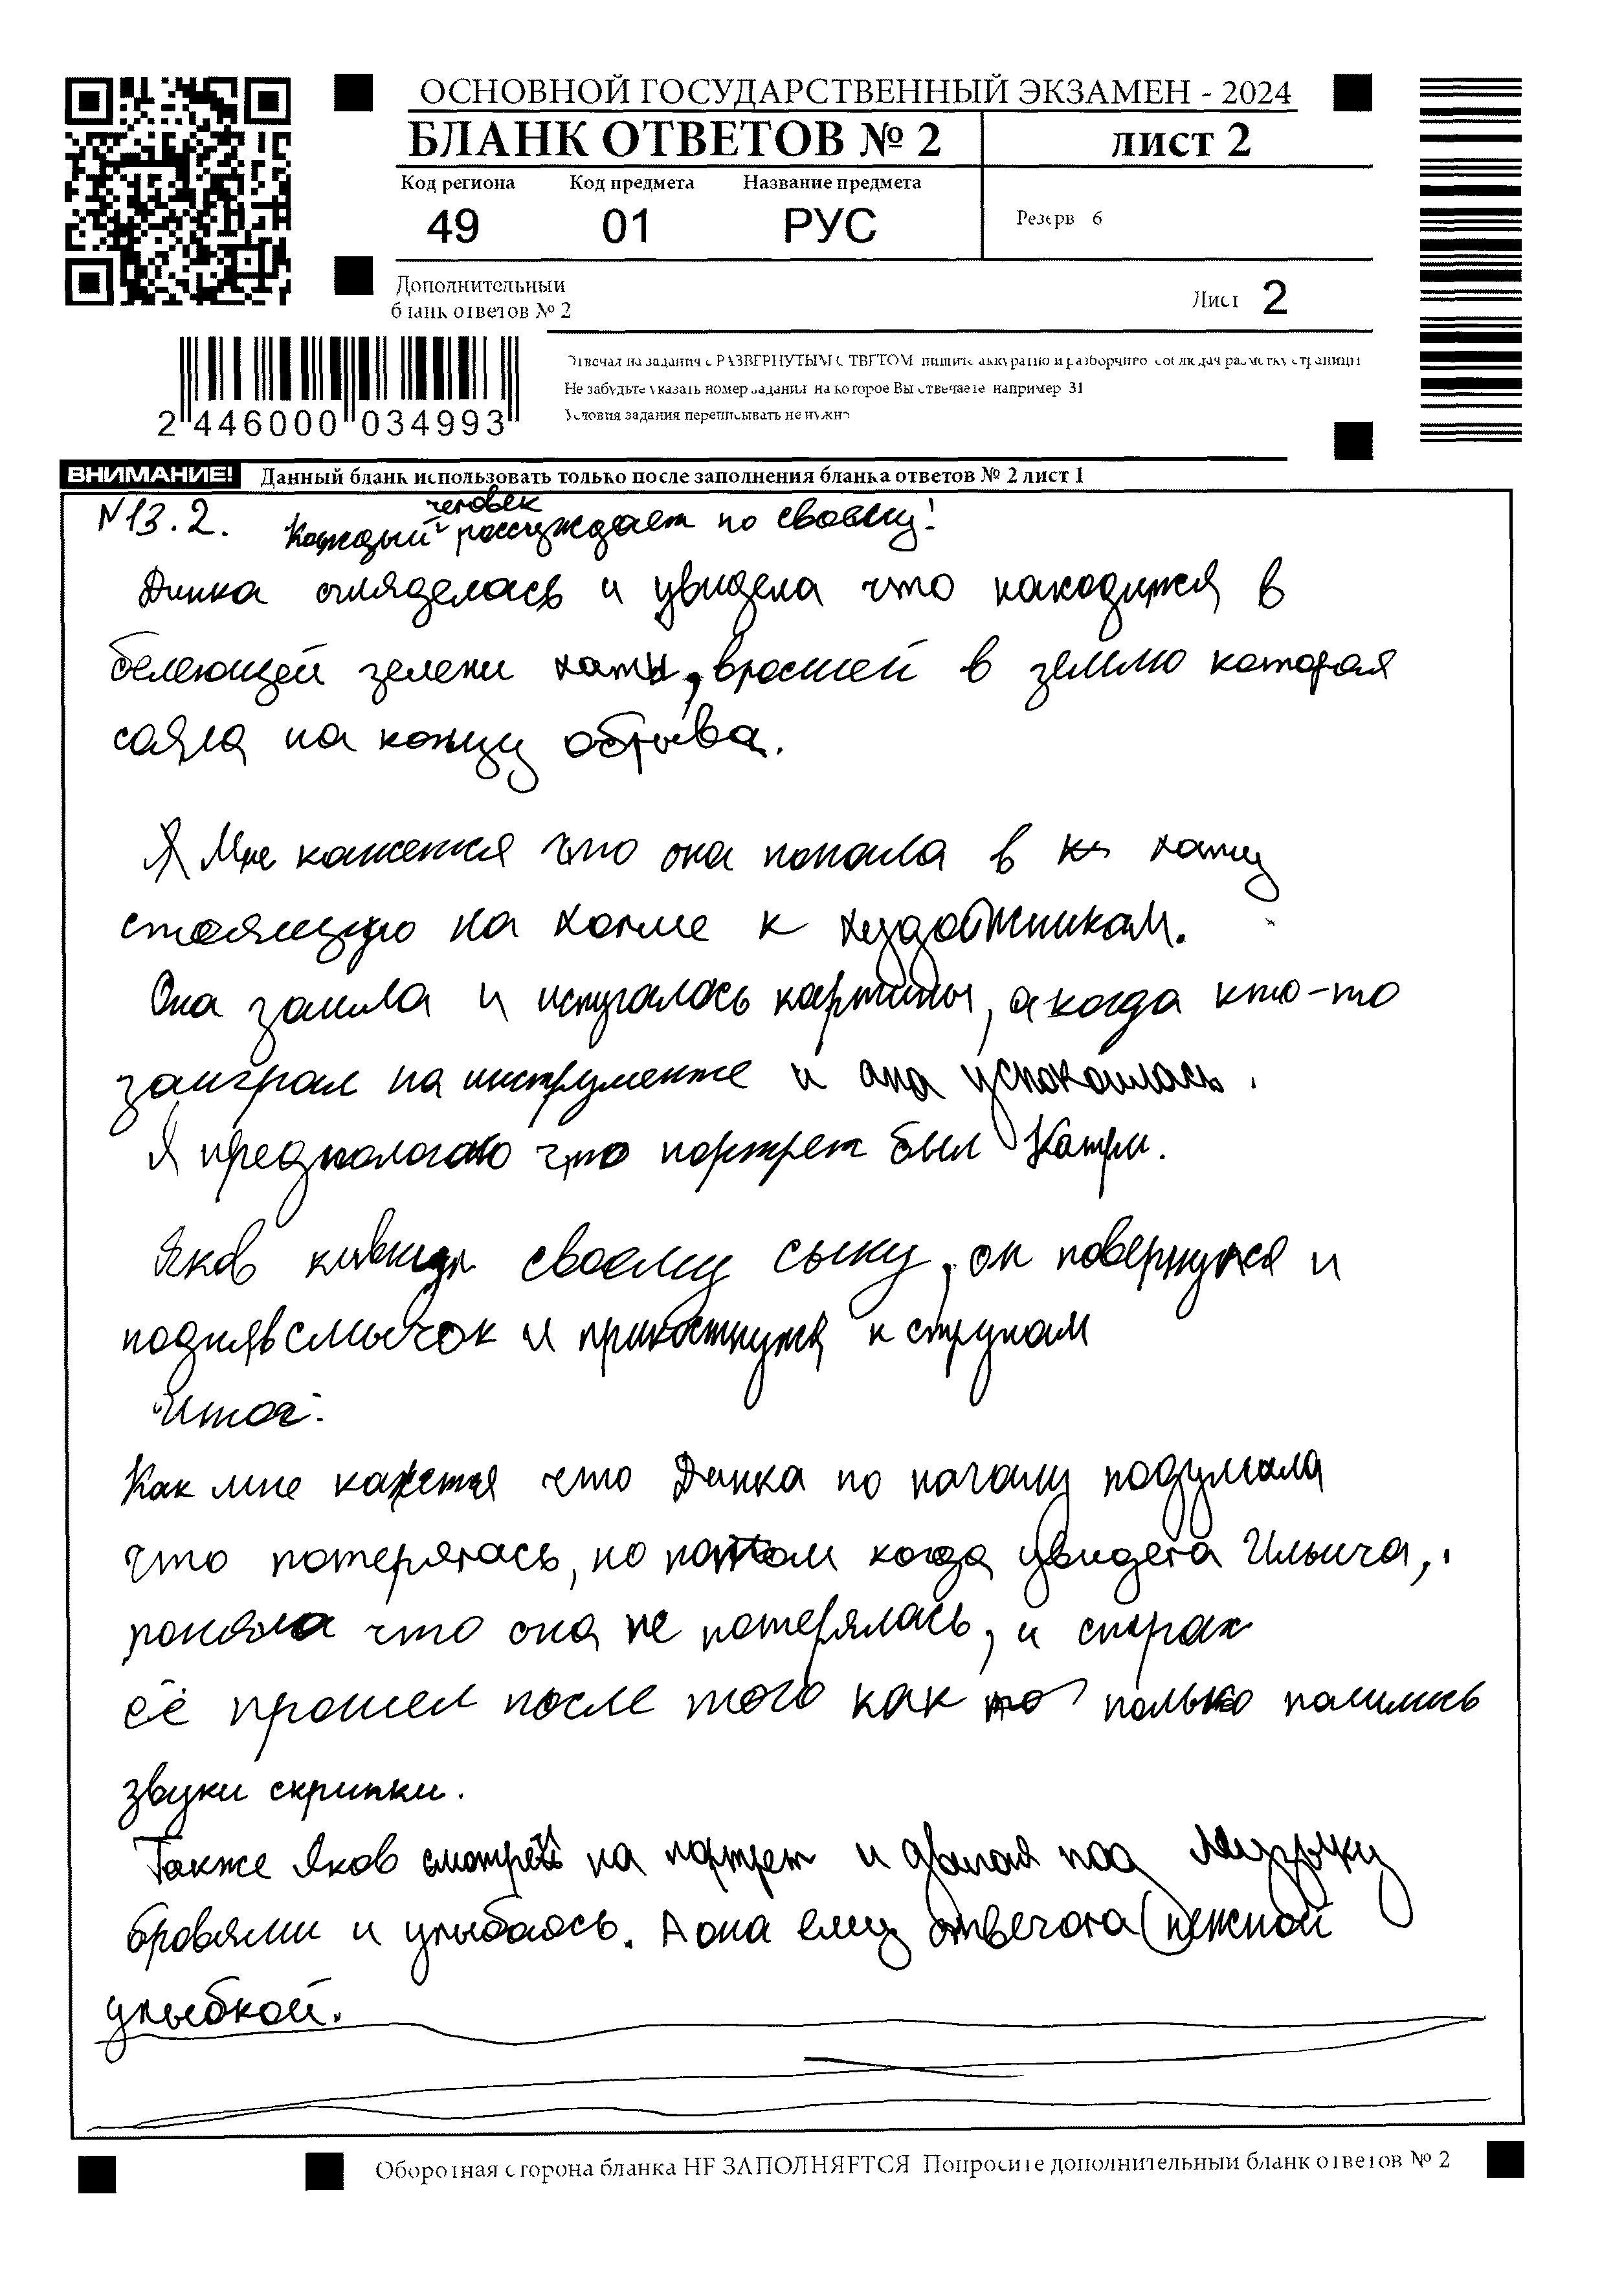 ОСНОВНОЙ ГОСУДАРСТВЕННЫЙ ЭКЗАМЕН - 2024
БЛАНК ОТВЕТОВ № 2
лист 2
Код региона Код предмета Название предмета
49 01 РУС
Резерв 6
Дополнительный
бланк ответов № 2
Лист 2
Отвечая на задания с РАЗВЕРНУТЫМ ОТВЕТОМ, пишите аккуратно и разборчиво, соблюдая разметку страницы
Не забудьте указать номер задания, на которое Вы отвечаете, например 31
Условия задания переписывать не нужно
2 446000 034993
ВНИМАНИЕ! Данный бланк использовать только после заполнения бланка ответов № 2 лист 1
человек
N13.2. Каждый рассуждает по своему!
Динка огляделась и увидела что находится в
белеющей зелени хаты, вросшей в землю которая
саяла на концу обрыва.
Я Мне кажется что она попала в хату
стоящую на холме к художникам.
Она зашла и испугалась картины, а когда кто-то
заиграл на инструменте и ана успокоилась.
Я предпологаю что портрет был Катри.
Яков кивнул своему сыну, он повернулся и
поднявсмычок и прикоснулся к струнам
Итог:
Как мне кажется что Динка по началу подумала
что потерялась, но потом когда увидела Ильича,
поняла что она не потерялась, и страх
её прошел после того как только полились
звуки скрипки.
Также Яков смотрел на портрет и двигая под музыку
бровями и улыбаясь. А она ему отвечала нежной
улыбкой.
Оборотная сторона бланка НЕ ЗАПОЛНЯЕТСЯ Попросите дополнительный бланк ответов № 2